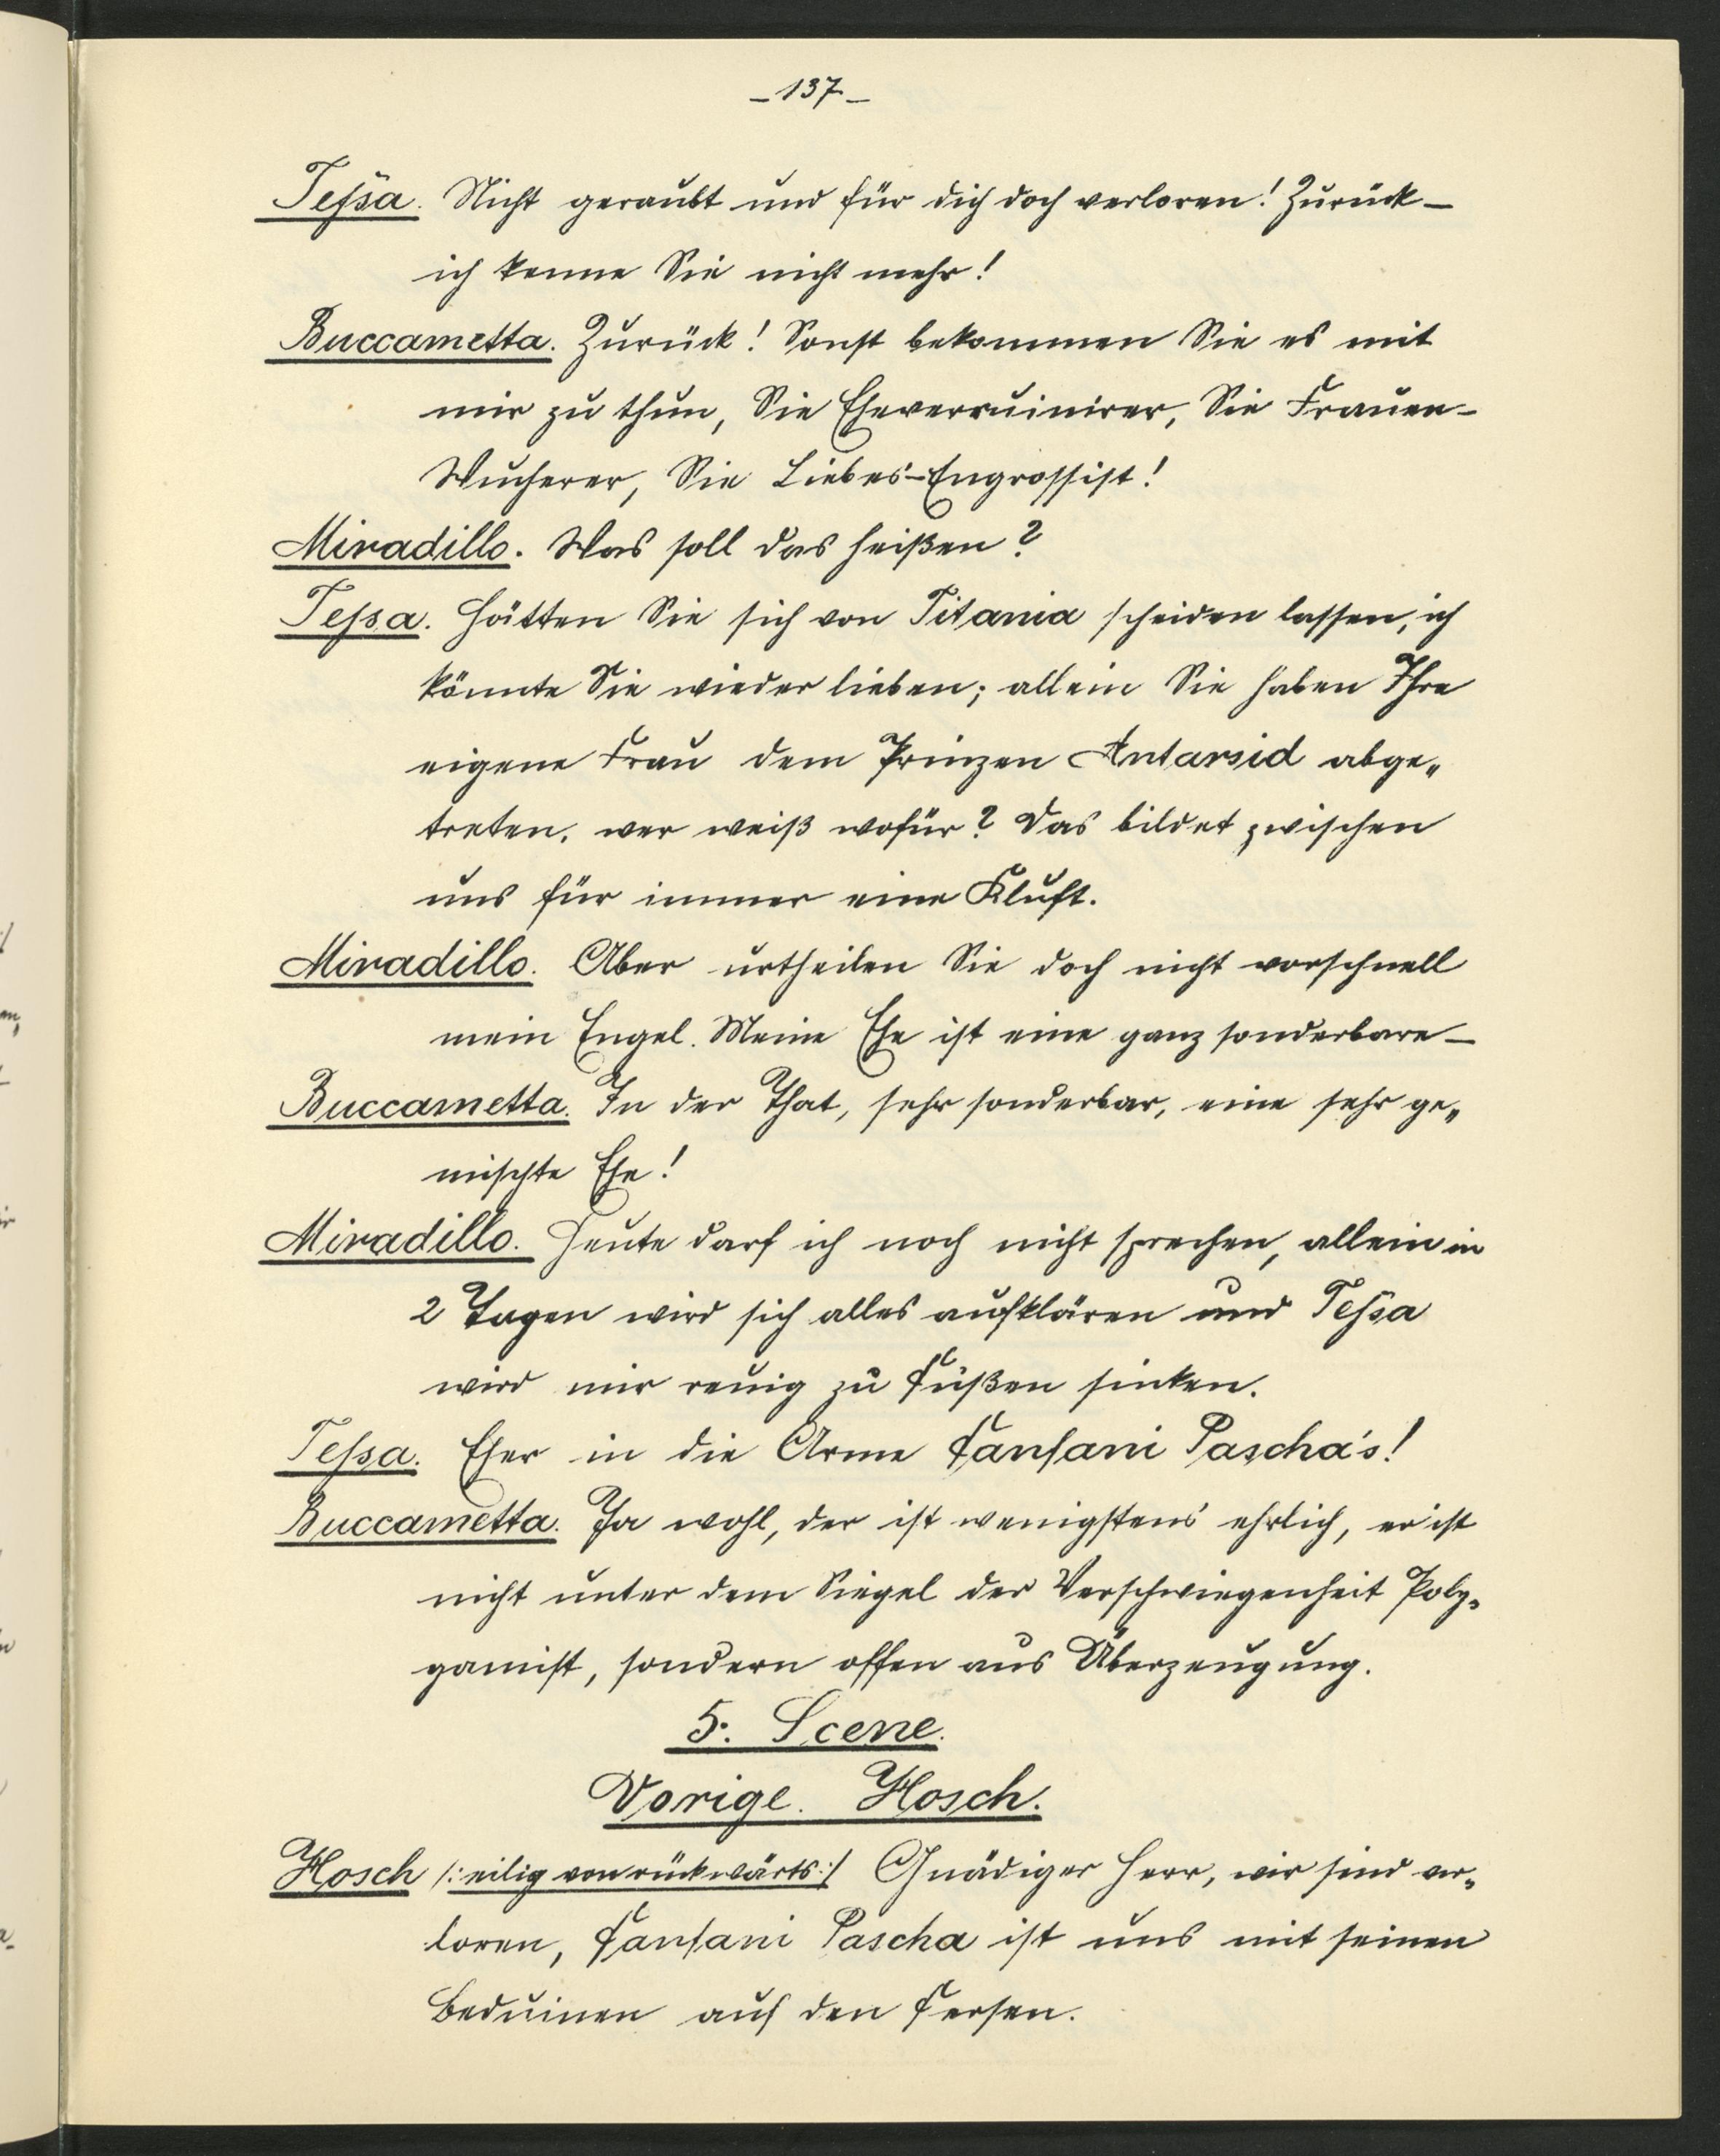 – 137 –
Teſsa. Nicht geraubt und für dich doch verloren! Zurück –
ich kenne Sie nicht mehr!
Buccametta. Zurück! Sonst bekommen Sie es mit
mir zu thun, Sie Eheverruinirer, Sie Frauen-
Wucherer, Sie Liebes-Engrossist!
Miradillo. Was soll das heißen?
Teſsa. Hätten Sie sich von Titania scheiden lassen, ich
könnte Sie wieder lieben; allein Sie haben Ihre
eigene Frau dem Prinzen Antarsid abge„
treten, wer weiß wofür? Das bildet zwischen
uns für immer eine Kluft.
Miradillo. Aber urtheilen Sie doch nicht vorschnell
mein Engel. Meine Ehe ist eine ganz sonderbare –
Buccametta. In der That, sehr sonderbar, eine sehr ge„
mischte Ehe!
Miradillo. Heute darf ich noch nicht sprechen, allein in
2 Tagen wird sich alles aufklären und Teſsa
wird mir reuig zu Füßen sinken.
Teſsa. Eher in die Arme Fanfani Pascha's!
Buccametta. Ja wohl, der ist wenigstens ehrlich, er ist
nicht unter dem Siegel der Verschwiegenheit Poly„
gamist, sondern offen aus Überzeugung.
5. Scene.
Vorige. Hosch.
Hosch /: eilig von rückwärts :/ Gnädiger Herr, wir sind ver„
loren, Fanfani Pascha ist uns mit seinen
Beduinen auf den Fersen.